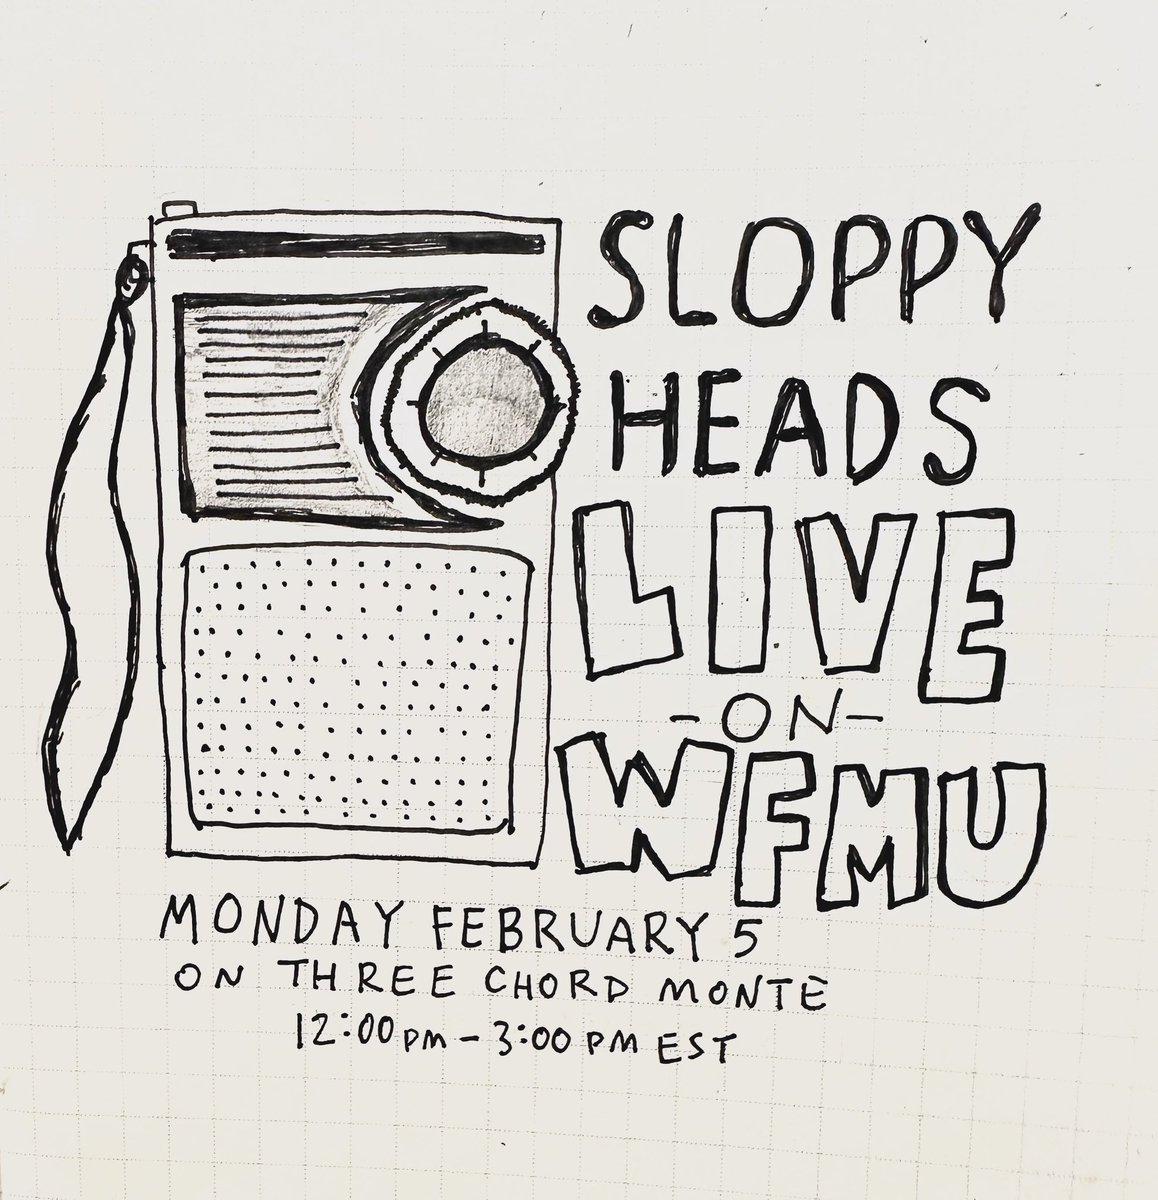 SLOPPY
HEADS
LIVE
-ON-
WFMU
MONDAY FEBRUARY 5
ON THREE CHORD MONTE
12:00 PM - 3:00 PM EST